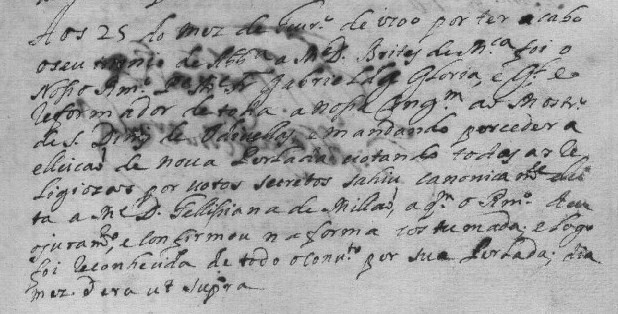 Aos 25 do mez de Feur.º de 1700 por ter acabado
o seu triennio de Abb.ª a M.e D. Brites de M.ca foi o
Nosso Rm.º P.e M. Fr. Gabriel da Gloria, e G.l e
Reformador de toda a Nossa Cong.m ao Mostr.º
de S. Dinis de Odiuellas, e mandando proceder a
elleicaõ de noua Perlada; uotando todas as Re
ligiozas por uotos secretos sahiu canonicam.te elei
ta a M.e D. Feliss iana de Millaõ, a q.m o Rm.º deu
o juram.to, e confirmou na forma costumada; e logo
foi reconhecida de todo o conu.to por sua Perlada; dia
mez. e era ut supra